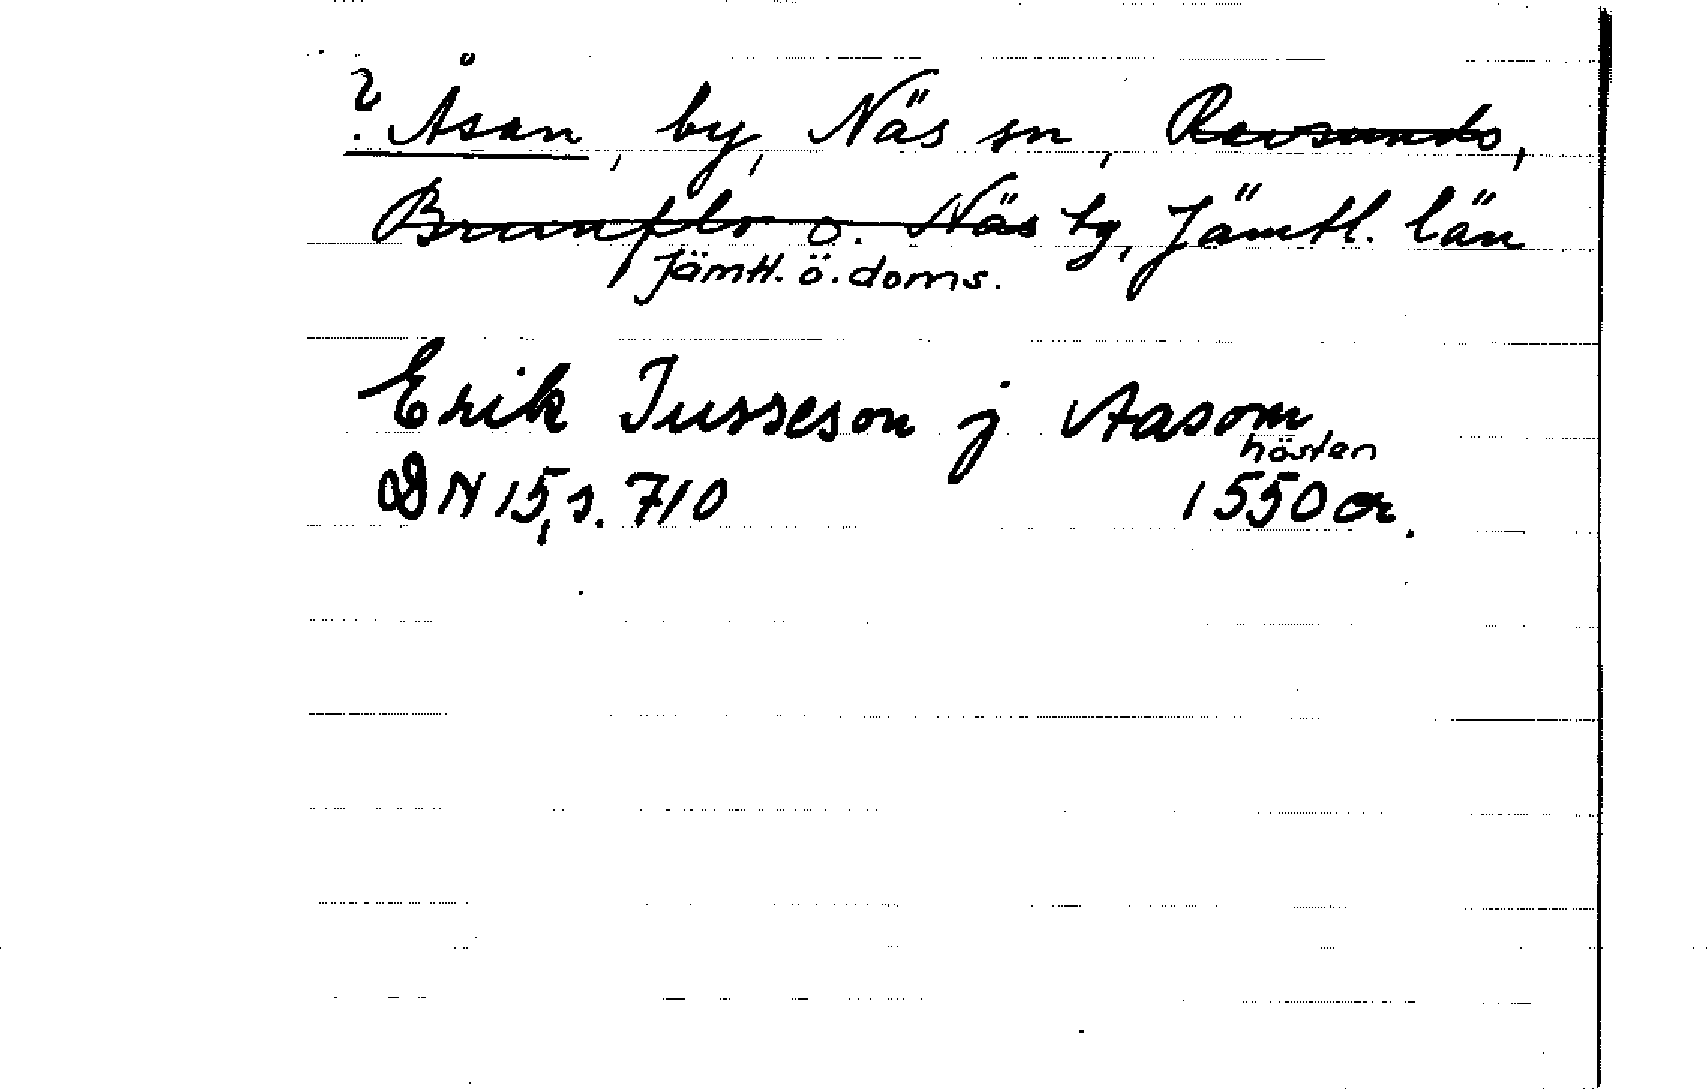 ? Åsan, by, Näs sn, Revsunds,
Brunflo o. Näs tg, Jämtl. län
Jämtl. ö. doms.
Erik Jusseson j Aasom
hösten
DN 15, s. 710 1550 or.